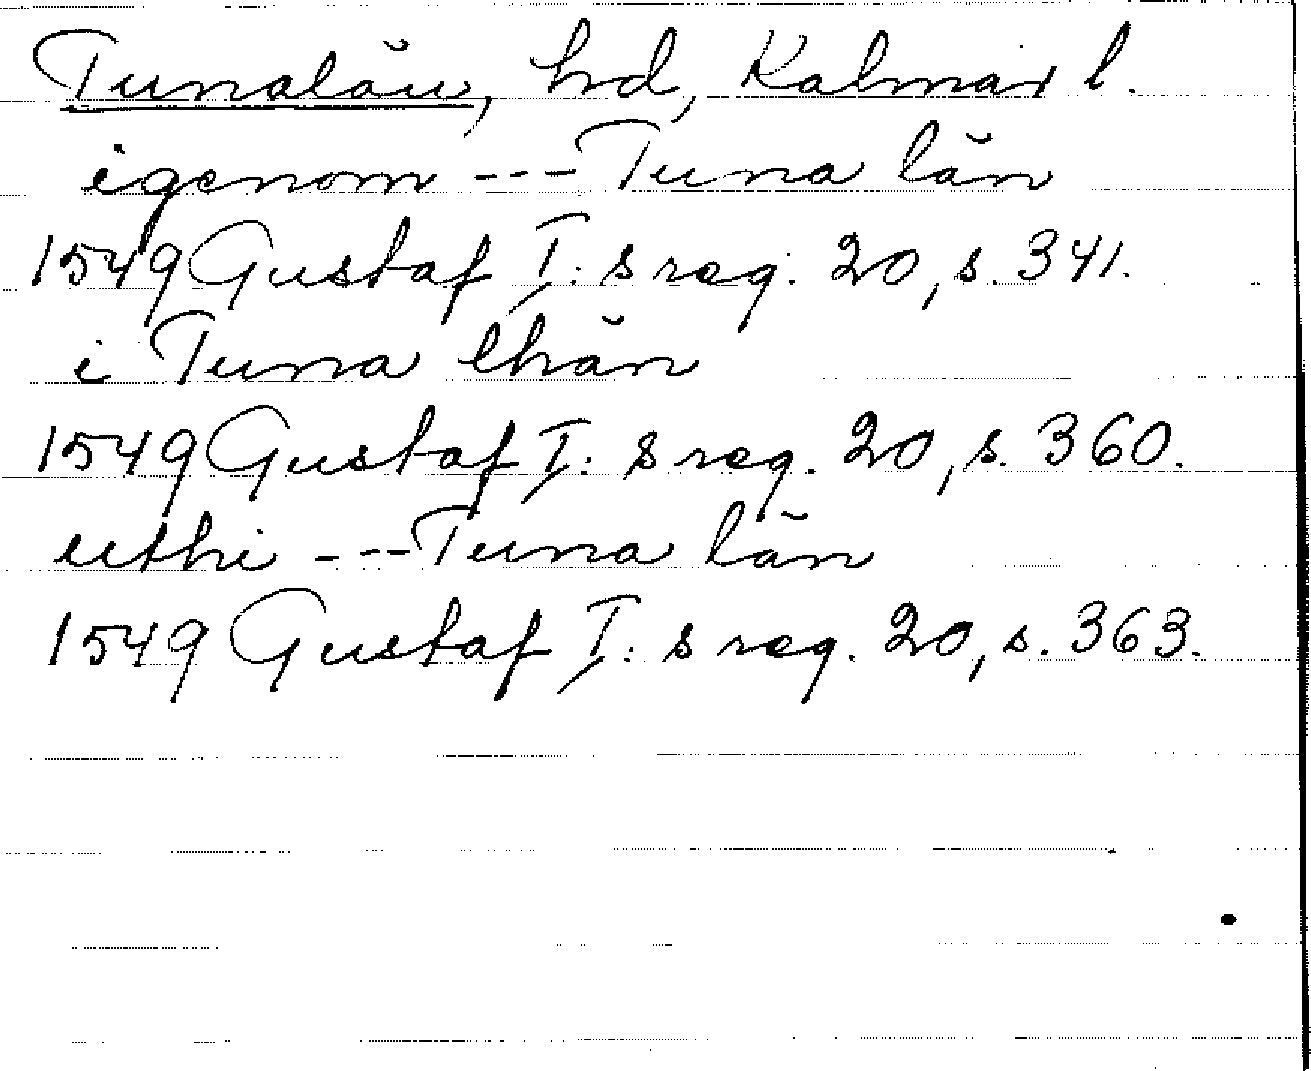 Tunalän, hd, Kalmar l.
igenom --- Tuna län
1549 Gustaf I:s reg. 20, s. 341.
i Tuna lhän
1549 Gustaf I:s reg. 20, s. 360.
uthi --- Tuna län
1549 Gustaf I:s reg. 20, s. 363.